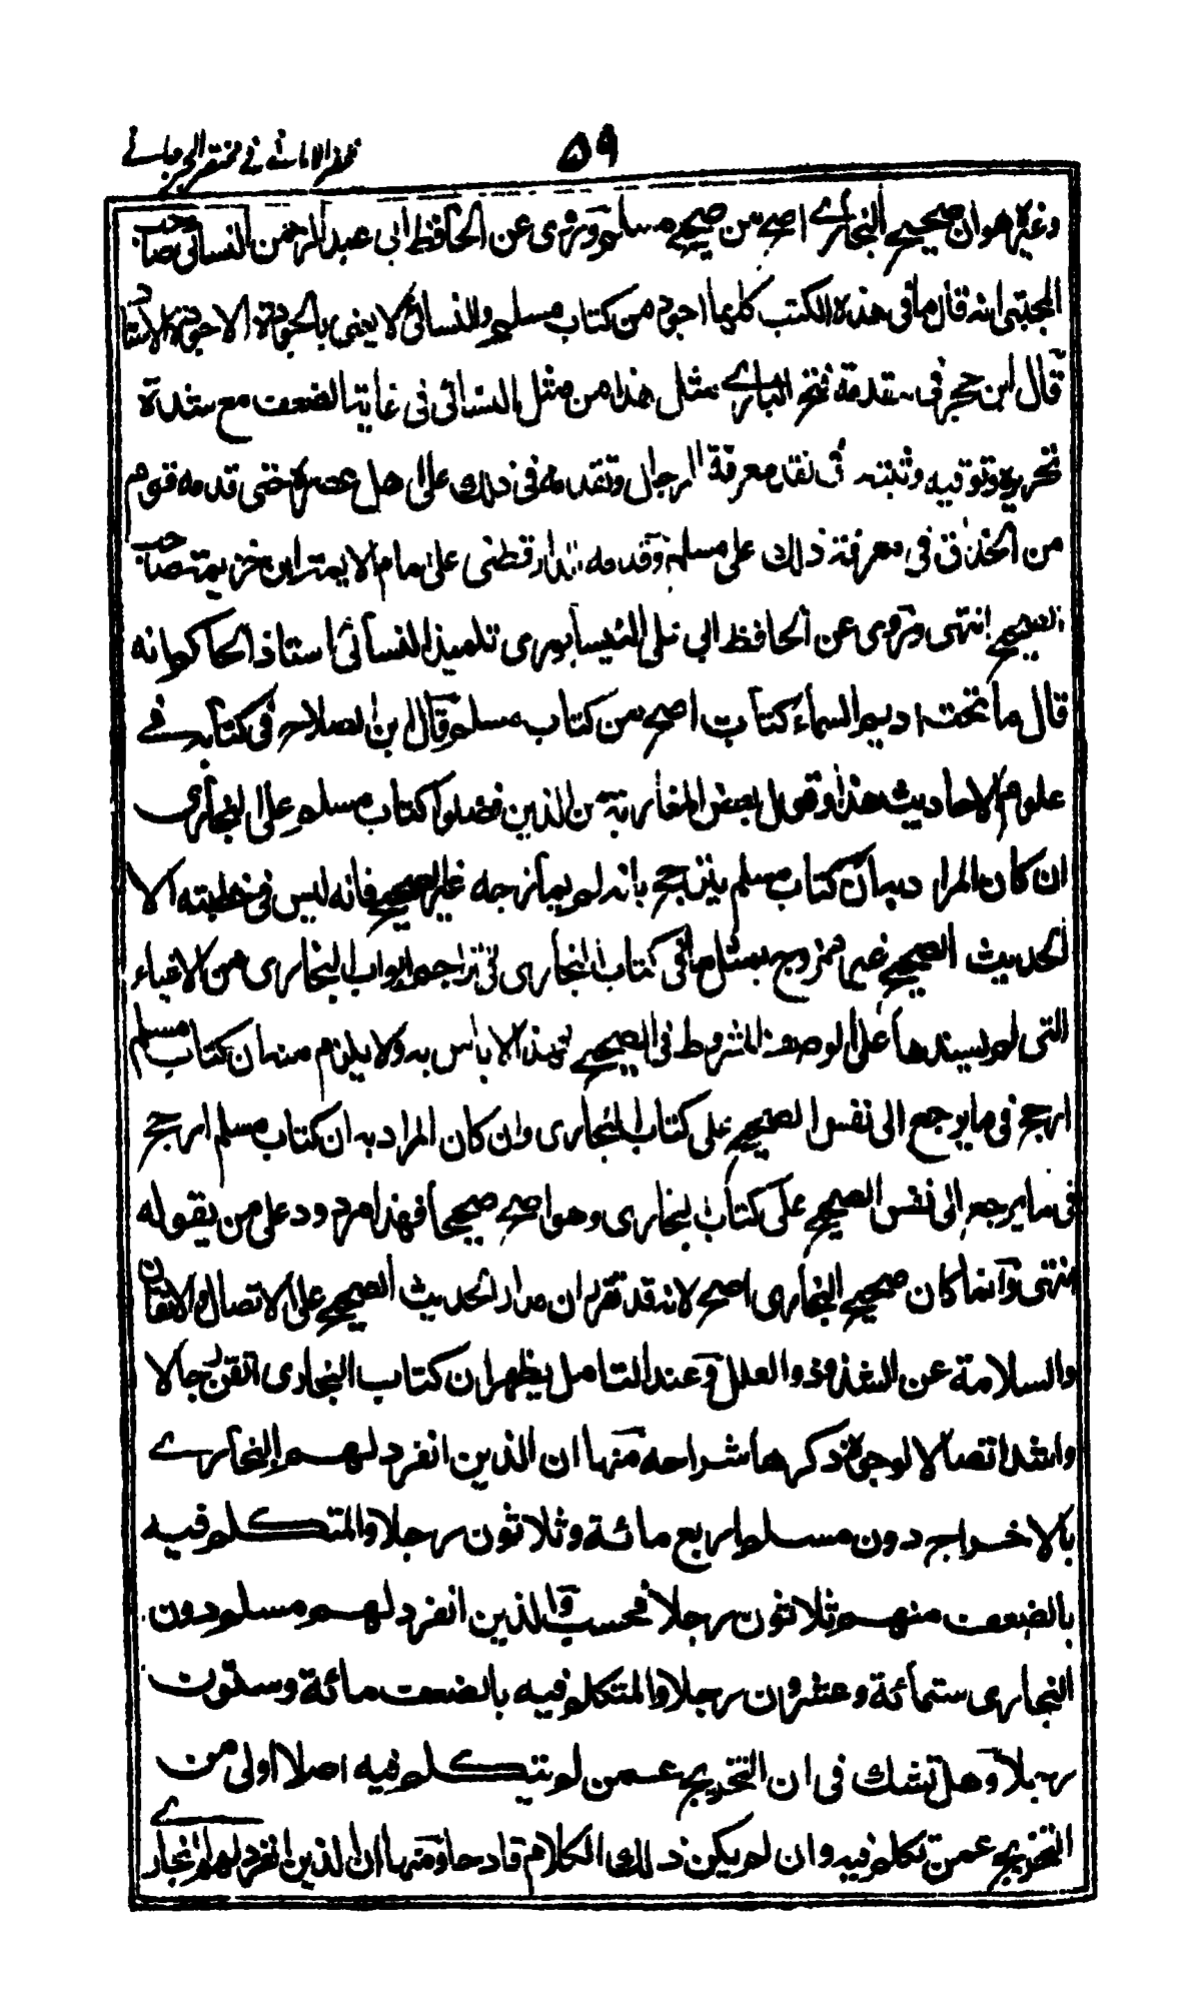 ٥٩
ظفر الاماني في مختصر الجرجاني
وغيره هو ان صحيح البخاري اصح من صحيح مسلم وروى عن الحافظ ابي عبد الرحمن النسائي صاحب
المجتبى انه قال ما في هذه الكتب كلها اجود من كتاب مسلم والنسائي لا يعني بالجودة الا جودة الاسناد
قال ابن حجر في مقدمة فتح الباري مثل هذا من مثل النسائي في غاية الضعف مع شدة
تحريه وتوقيه وتثبته في نقد معرفة الرجال وتقدمه في ذلك على اهل عصره حتى قدمه قوم
من الحذاق في معرفة ذلك على مسلم وقدمه الدارقطني على امام الايمة ابن خزيمة صاحب
الصحيح انتهى وروى عن الحافظ ابي علي النيسابوري تلميذ النسائي استاذ الحاكم انه
قال ما تحت اديم السماء كتاب اصح من كتاب مسلم قال ابن الصلاح في كتابه في
علوم الاحاديث هذا وقول بعض المغاربة من الذين فضلوا كتاب مسلم على البخاري
ان كان المراد به ان كتاب مسلم يترجح بانه لم يمازجه غير الصحيح فانه ليس في خطبته الا
الحديث الصحيح غير ممزوج بمثل ما في كتاب البخاري في تراجم ابواب البخاري من الاشياء
التي لم يسندها على الوصف المشروط في الصحيح فهذا لا باس به ولا يلزم منه ان كتاب مسلم
ارجح في ما يرجع الى نفس الصحيح على كتاب البخاري وان كان المراد به ان كتاب مسلم ارجح
في ما يرجع الى نفس الصحيح على كتاب البخاري وهو اصح صحيحا فهذا مردود على من يقوله
انتهى وانما كان صحيح البخاري اصح لانه قد تقرر ان مدار الحديث الصحيح على الاتصال والاتقان
والسلامة عن الشذوذ والعلل وعند التامل يظهر ان كتاب البخاري اتقن رجالا
واشد اتصالا لوجوه ذكرها شراحه منها ان الذين انفرد لهم البخاري
بالاخراج دون مسلم اربع مائة وثلاثون رجلا والمتكلم فيه
بالضعف منهم ثلاثون رجلا فحسب والذين انفرد لهم مسلم دون
البخاري ستمائة وعشرون رجلا والمتكلم فيه بالضعف مائة وستون
رجلا وهل تشك في ان التخريج عمن لم يتكلم فيه اصلا اولى من
التخريج عمن تكلم فيه وان لم يكن ذلك الكلام قادحا ومنها ان الذين انفرد لهم البخاري